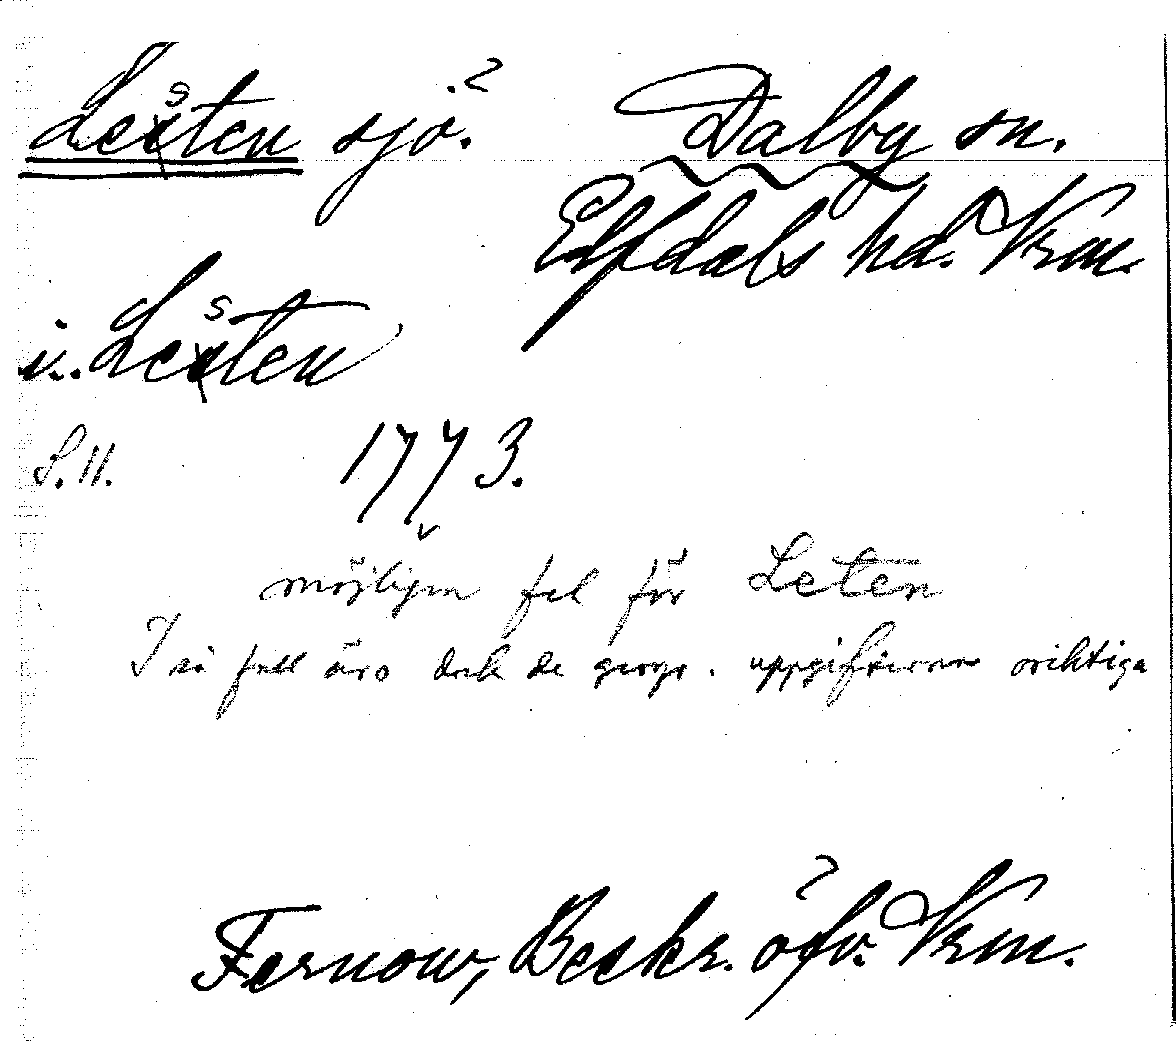 Lesten sjö.? Dalby sn.
Elfdals hd. Vrm.
i. Lesten
S. 11. 1773.
möjligen fel för Leten
I så fall äro dock de geogr. uppgifterna oriktiga
Fernow, Beskr. öfv. Vrm.